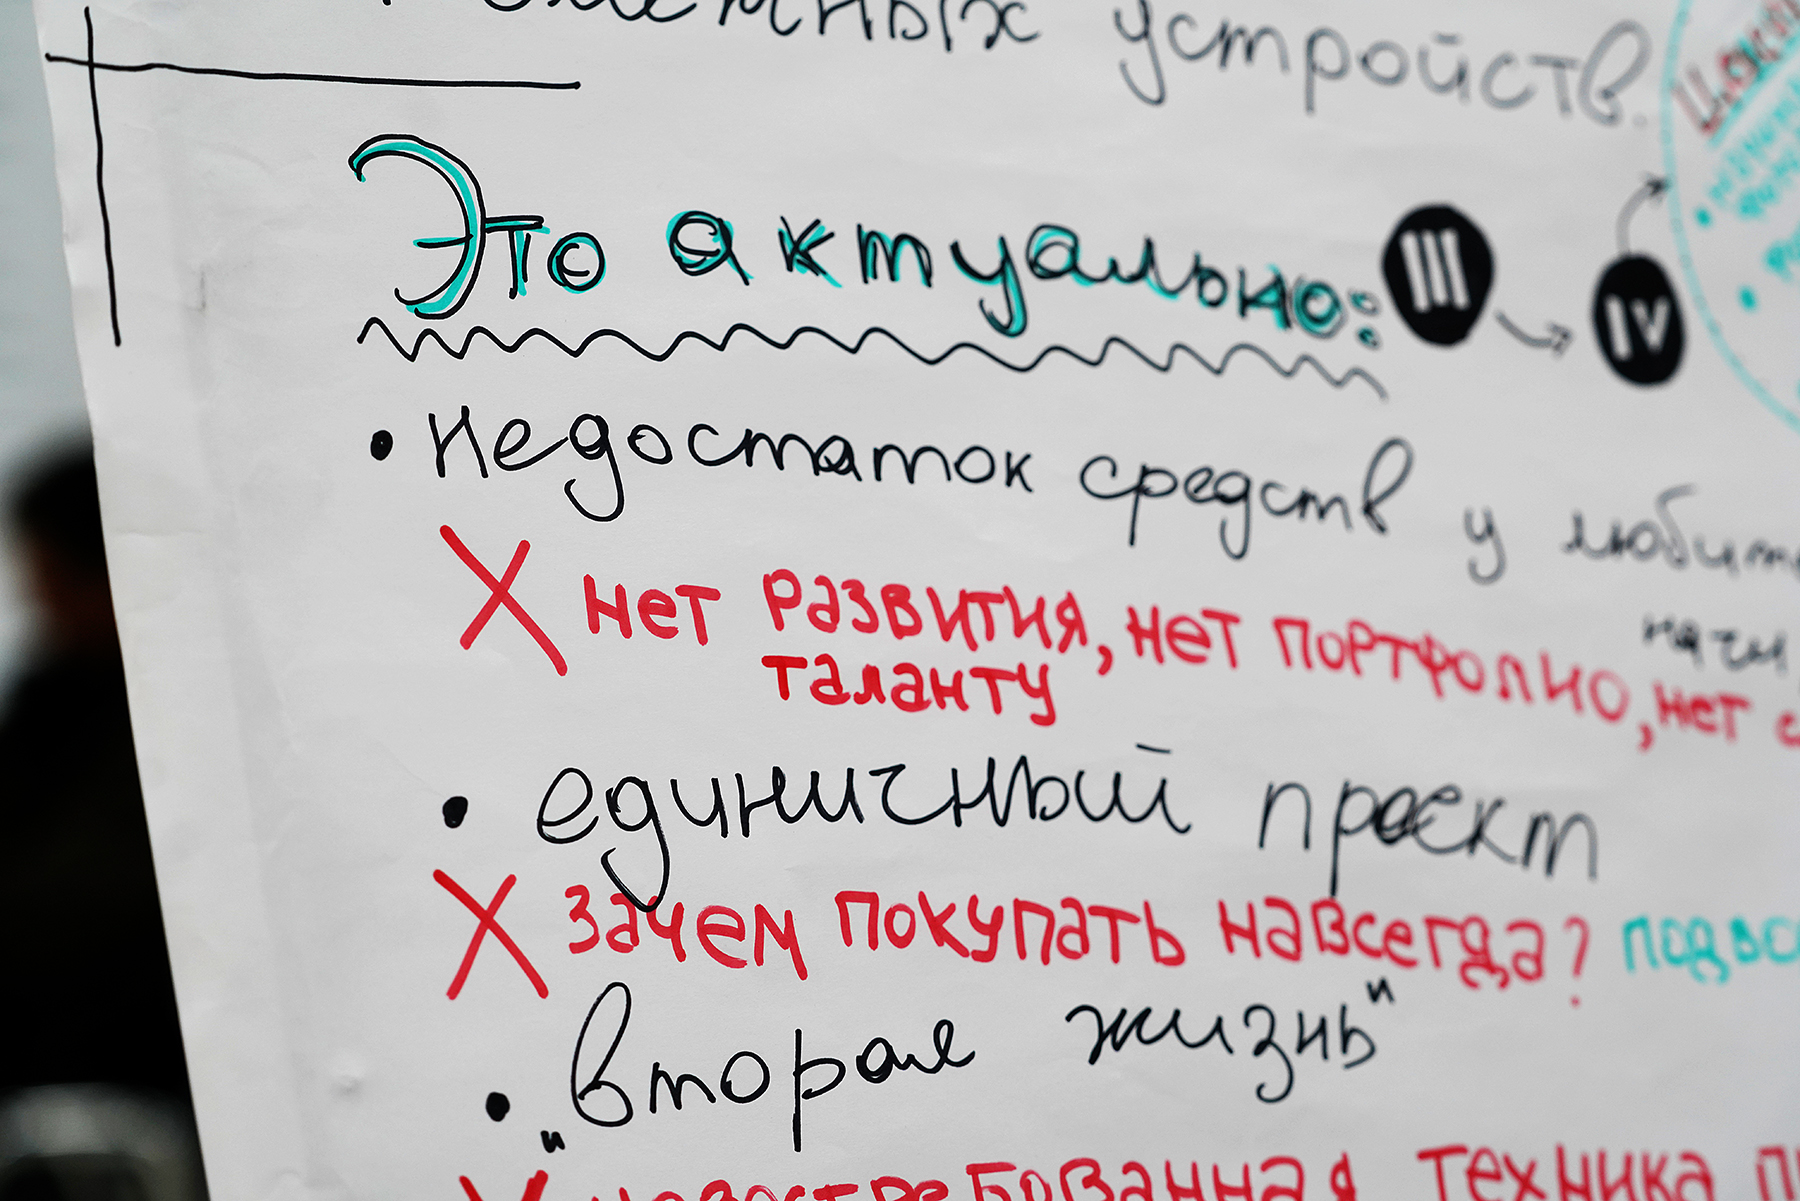 устройств.
Это актуально:
III
IV
• недостаток средств у
✗ нет развития, нет портфолио, нет
таланту
• единичный проект
✗ зачем покупать навсегда?
• "вторая жизнь"
✗ невостребованная техника